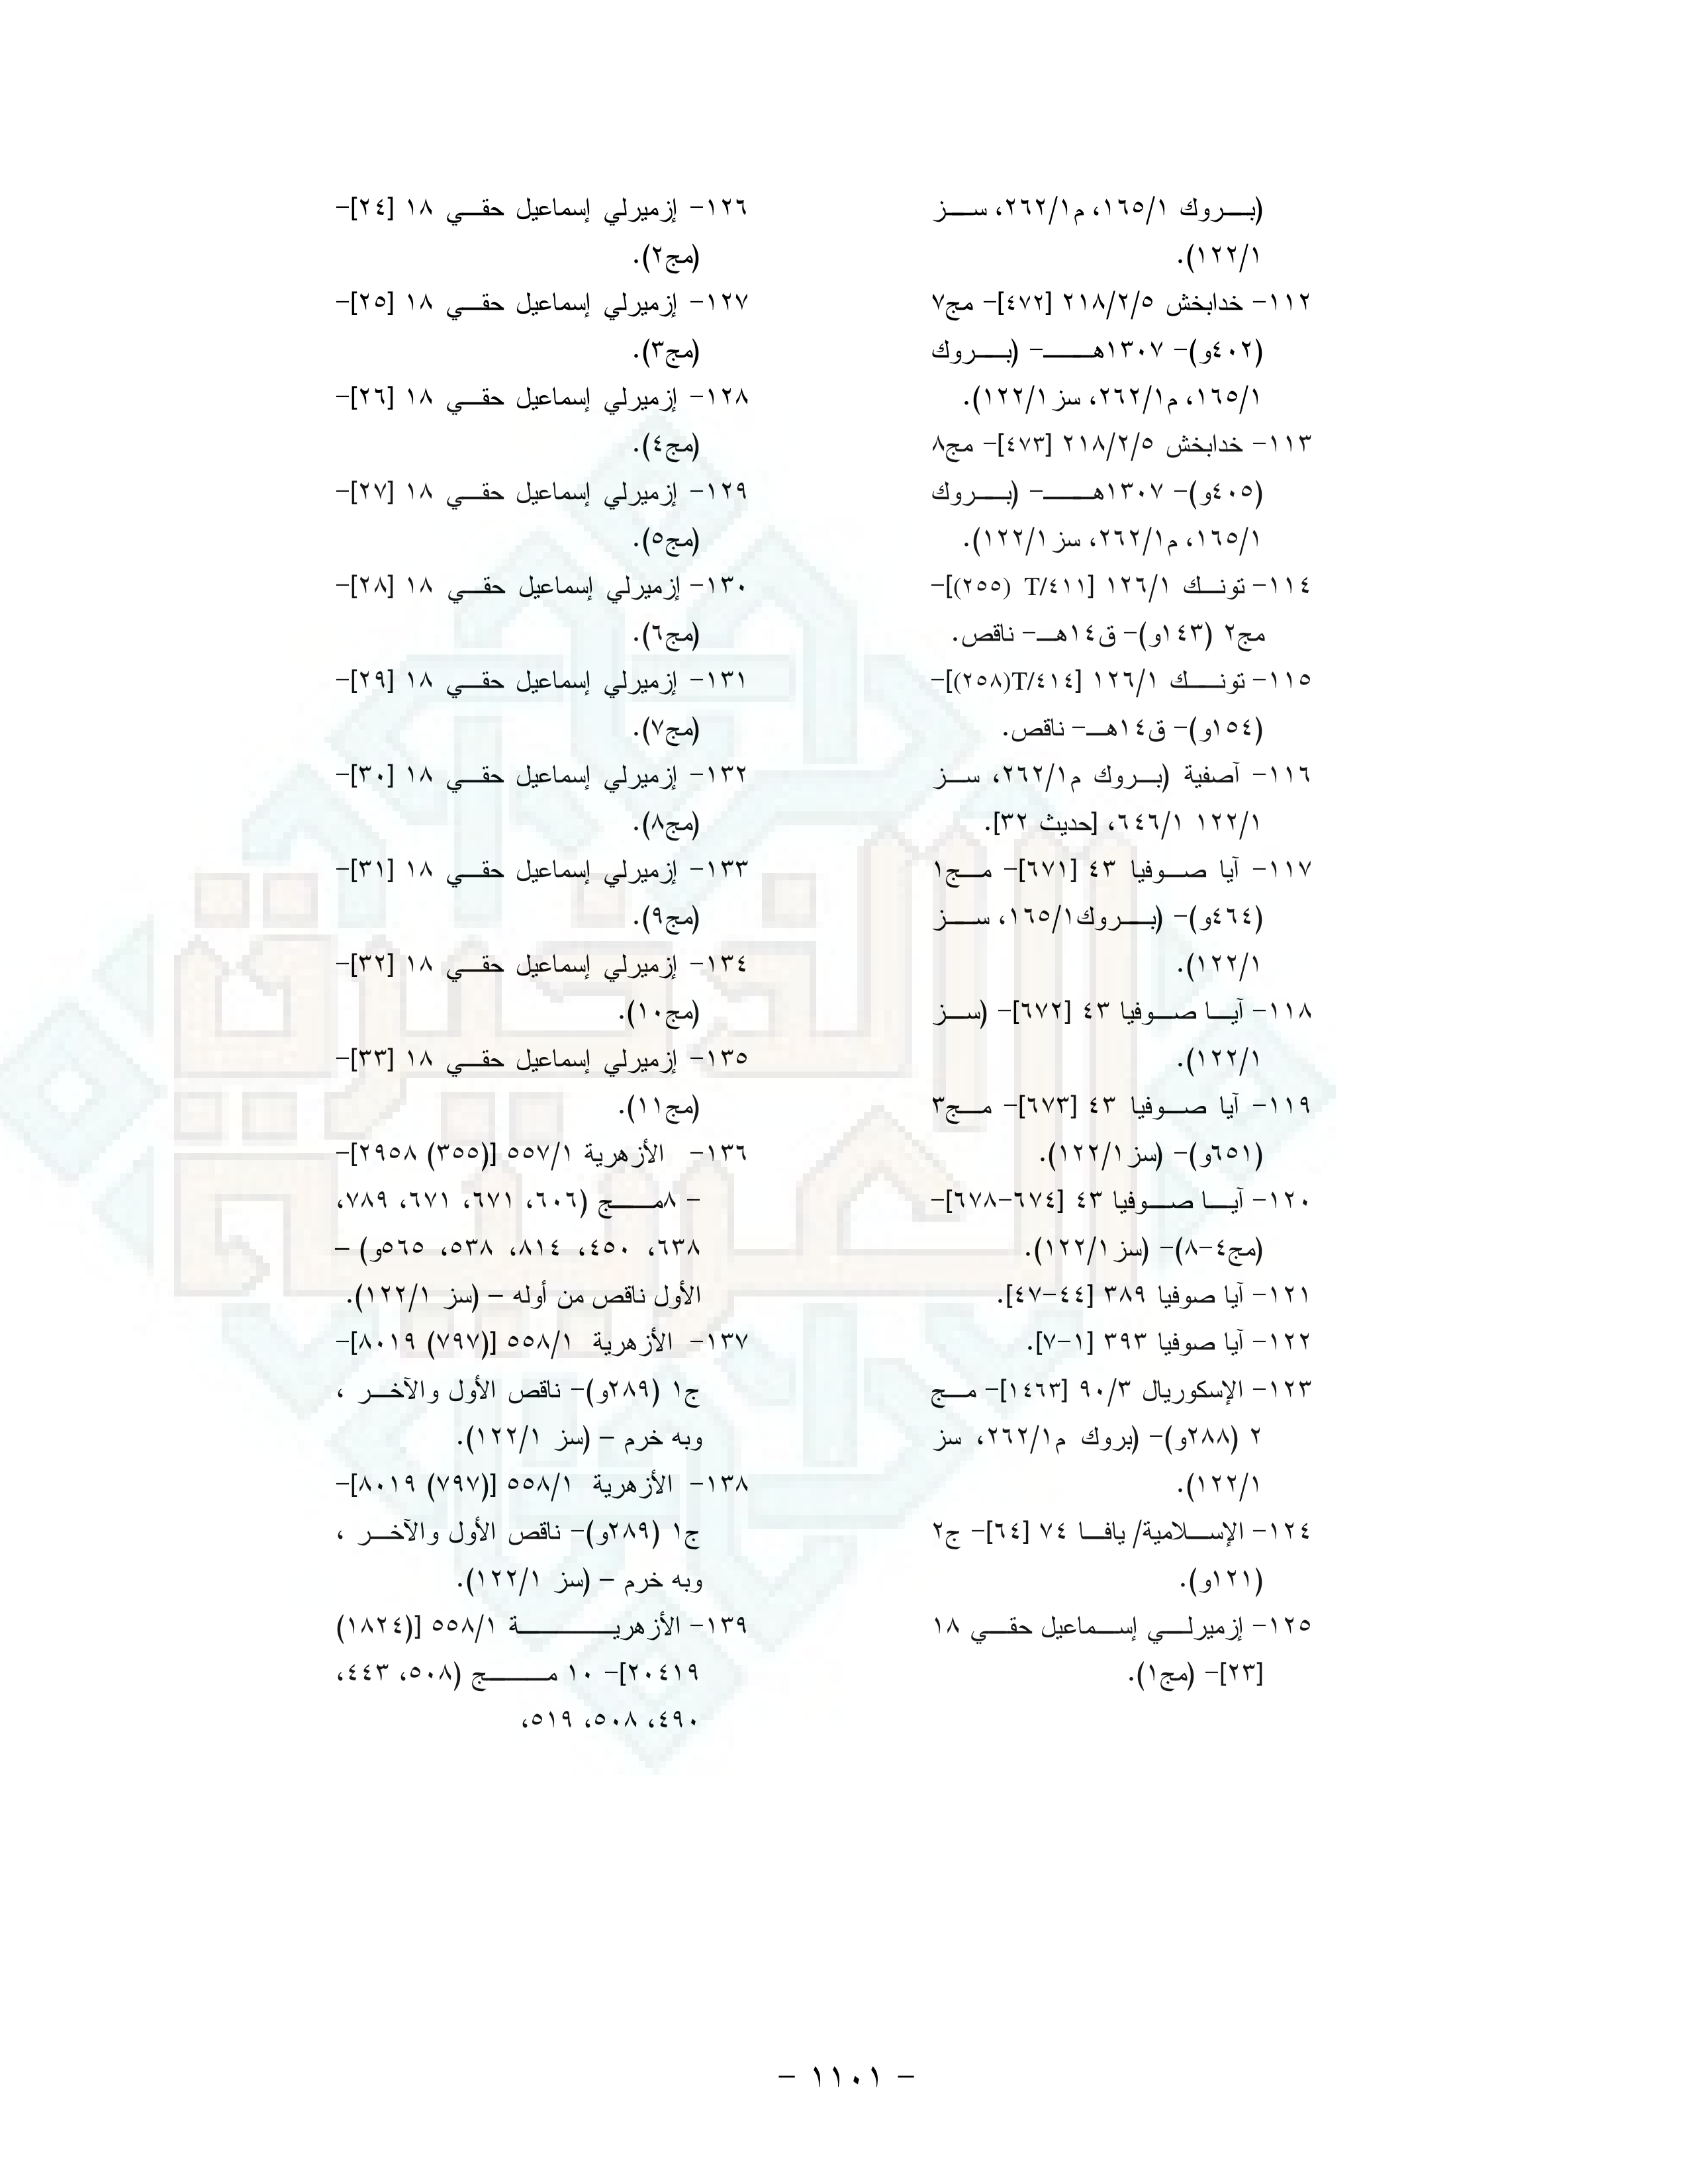 (بروك ١/١٦٥، م١/٢٦٢، سز
١/١٢٢).
١١٢- خدابخش ٥/٢/٢١٨ [٤٧٢]- مج٧
(٤٠٢و)- ١٣٠٧هـ- (بروك
١/١٦٥، م١/٢٦٢، سز١/١٢٢).
١١٣- خدابخش ٥/٢/٢١٨ [٤٧٣]- مج٨
(٤٠٥و)- ١٣٠٧هـ- (بروك
١/١٦٥، م١/٢٦٢، سز١/١٢٢).
١١٤- تونك ١/١٢٦ [٤١١/T (٢٥٥)]-
مج٢ (١٤٣و)- ق١٤هـ- ناقص.
١١٥- تونك ١/١٢٦ [٤١٤/T(٢٥٨)]-
(١٥٤و)- ق١٤هـ- ناقص.
١١٦- آصفية (بروك م١/٢٦٢، سز
١/١٢٢ ١/٦٤٦، [حديث ٣٢].
١١٧- آيا صوفيا ٤٣ [٦٧١]- مج١
(٤٦٤و)- (بروك١/١٦٥، سز
١/١٢٢).
١١٨- آيا صوفيا ٤٣ [٦٧٢]- (سز
١/١٢٢).
١١٩- آيا صوفيا ٤٣ [٦٧٣]- مج٣
(٦٥١و)- (سز١/١٢٢).
١٢٠- آيا صوفيا ٤٣ [٦٧٤-٦٧٨]-
(مج٤-٨)- (سز١/١٢٢).
١٢١- آيا صوفيا ٣٨٩ [٤٤-٤٧].
١٢٢- آيا صوفيا ٣٩٣ [١-٧].
١٢٣- الإسكوريال ٣/٩٠ [١٤٦٣]- مج
٢ (٢٨٨و)- (بروك م١/٢٦٢، سز
١/١٢٢).
١٢٤- الإسلامية/ يافا ٧٤ [٦٤]- ج٢
(١٢١و).
١٢٥- إزميرلي إسماعيل حقي ١٨
[٢٣]- (مج١).
١٢٦- إزميرلي إسماعيل حقي ١٨ [٢٤]-
(مج٢).
١٢٧- إزميرلي إسماعيل حقي ١٨ [٢٥]-
(مج٣).
١٢٨- إزميرلي إسماعيل حقي ١٨ [٢٦]-
(مج٤).
١٢٩- إزميرلي إسماعيل حقي ١٨ [٢٧]-
(مج٥).
١٣٠- إزميرلي إسماعيل حقي ١٨ [٢٨]-
(مج٦).
١٣١- إزميرلي إسماعيل حقي ١٨ [٢٩]-
(مج٧).
١٣٢- إزميرلي إسماعيل حقي ١٨ [٣٠]-
(مج٨).
١٣٣- إزميرلي إسماعيل حقي ١٨ [٣١]-
(مج٩).
١٣٤- إزميرلي إسماعيل حقي ١٨ [٣٢]-
(مج١٠).
١٣٥- إزميرلي إسماعيل حقي ١٨ [٣٣]-
(مج١١).
١٣٦- الأزهرية ١/٥٥٧ [(٣٥٥) ٢٩٥٨]-
- ٨مج (٦٠٦، ٦٧١، ٦٧١، ٧٨٩،
٦٣٨، ٤٥٠، ٨١٤، ٥٣٨، ٥٦٥و) –
الأول ناقص من أوله – (سز ١/١٢٢).
١٣٧- الأزهرية ١/٥٥٨ [(٧٩٧) ٨٠١٩]-
ج١ (٢٨٩و)- ناقص الأول والآخر ،
وبه خرم – (سز ١/١٢٢).
١٣٨- الأزهرية ١/٥٥٨ [(٧٩٧) ٨٠١٩]-
ج١ (٢٨٩و)- ناقص الأول والآخر ،
وبه خرم – (سز ١/١٢٢).
١٣٩- الأزهرية ١/٥٥٨ [(١٨٢٤)
٢٠٤١٩]- ١٠ مج (٥٠٨، ٤٤٣،
٤٩٠، ٥٠٨، ٥١٩،
- ١١٠١ -
الذخيرة
العربية